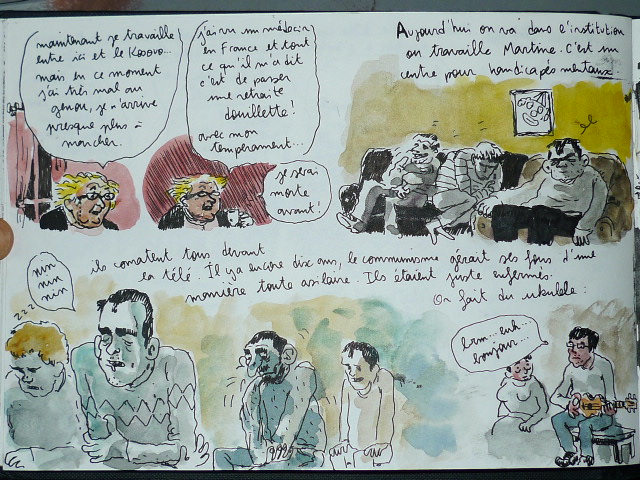 maintenant je travaille
entre ici et le Kosovo...
mais en ce moment
j'ai très mal au
genou, je n'arrive
presque plus à
marcher.
j'ai vu un médecin
en France et tout
ce qu'il m'a dit
c'est de passer
une retraite
douillette!
avec mon
temperament...
je serai
morte
avant!
Aujourd'hui on va dans l'institution
ou travaille Martine. C'est un
centre pour handicapés mentaux
ils comatent tous devant
la télé. Il y a encore dix ans, le communisme gérait ses fous d'une
manière toute asilaire. Ils étaient juste enfermés.
On fait du ukulele:
zzz
nin
nin
nin
brm... euh...
bonjour...